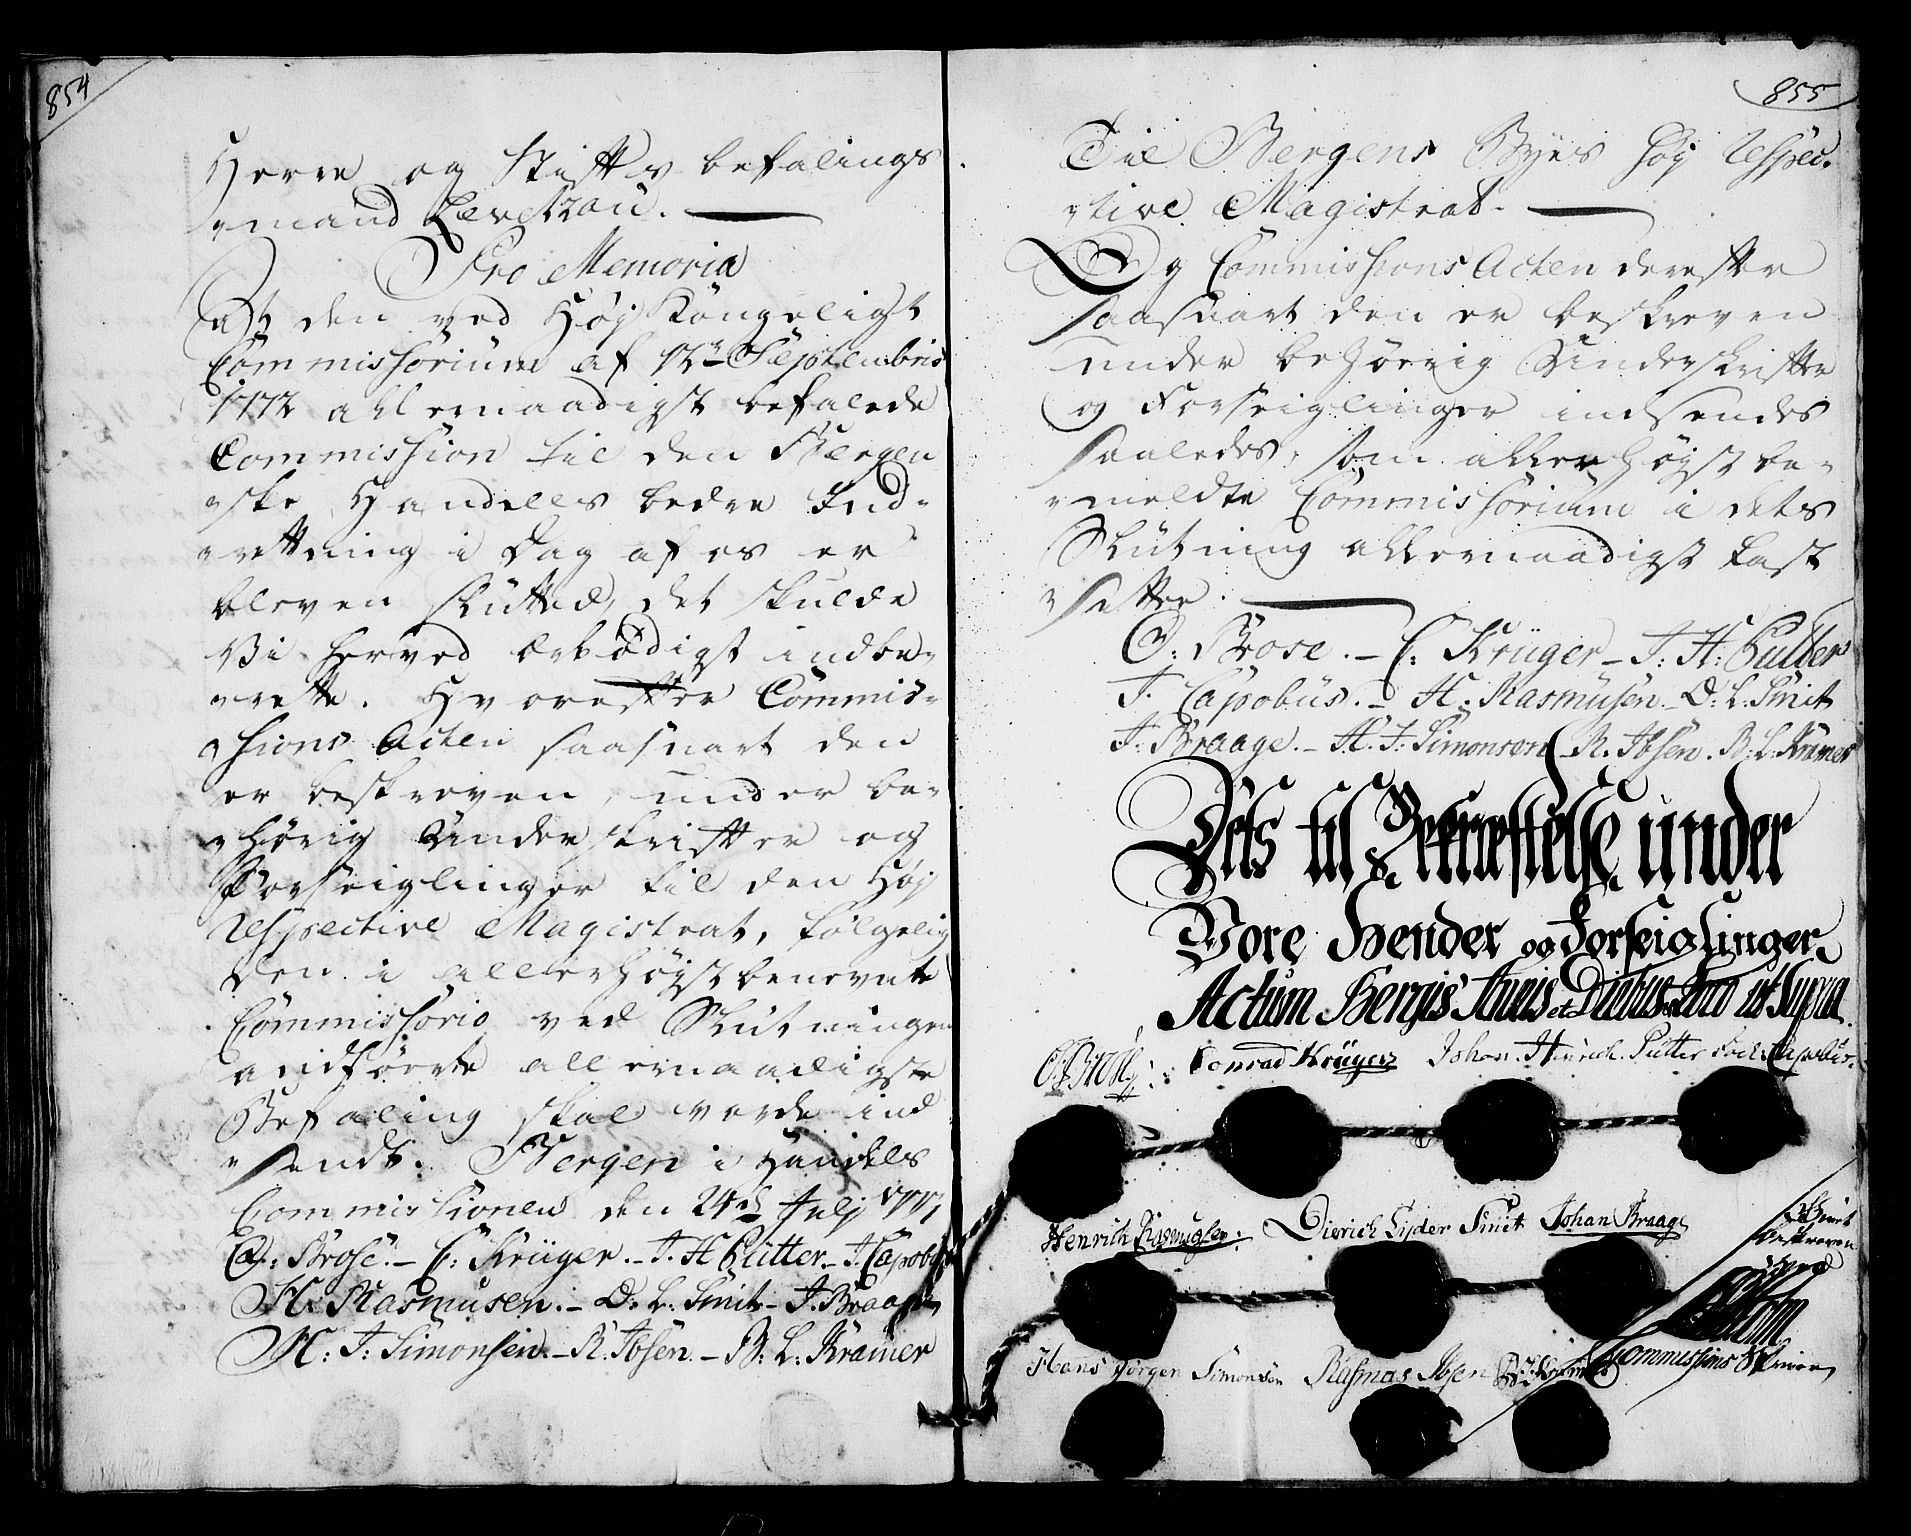 854
Herre og Stifts befalings
mand Levetzou.
Pro Memoria
At den ved Høj Kongeligt
Commissorium af 12te Septembris
1772 allernaadigst befalede
Commission til den Bergen
ske Handells bedre Ind-
rettning i Dag af os er
bleven slutted, det skulde
Vi herved ærbødigst indbe-
rette. Hvorefter Commis-
sions Acten saasnart den
er beskreven, under be-
hørig Underskrifter og
Forseiglinger til den Høj
Respective Magistrat, følgelig
den i allerhøjst benevnte
Commissorio ved Slutningen
anførte allernaadigste
Befaling skal vorde ind
sendt. Bergen i Handels
Commissionen den 24de Julj
O: Brose. - C: Krüger. - J: H Pütter. - J: Capobus
H: Rasmusen. - D. L. Smit - J. Braage
H: J: Simonsen. - R. Ibsen. - B: L: Kramer
855
Til Bergens Byes høj Respec-
tive Magistrat.
Og Commissions Acten derefter
saasnart den er beskreven
under behørig Underskrifter
og Forseiglinger indsendes
saaledes, som allerhøjst be-
meldte Commissorium i dets
Slutning allernaadigst fast
setter.
O: Brose. - C: Krüger - J: H: Pütter
J. Capobus. - H. Rasmusen - D: L. Smit
J: Braage. - H. J: Simonsen - R. Ibsen. B: L: Kramer
Dets til Bekræftelse under
Vore Hender og Forseiglinger
Actum Bergis Annis et Diebus ut Supra.
O: Brose: Conrad Krüger Johan Hinrich Pütter Jach: Capobus.
Henrich Rasmusen: Dierich Lyder Smit Johan Braage
beskreven
Holm
Commissions Skriver
Hans Jørgen Simonsen Rasmus Ibsen